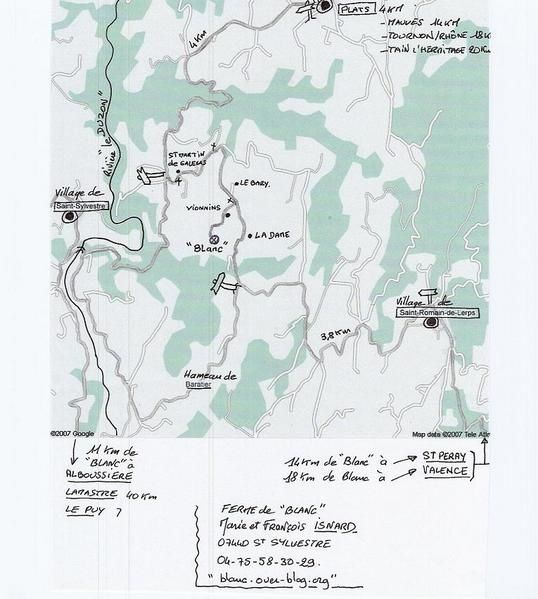 PLATS 4KM
- MAUVES 14 KM
- TOURNON/RHÔNE 18K
- TAIN L'HERMITAGE 20KM
4 KM
Rivière "le DUZON"
ST MARTIN
de GALEJAS
Village de
Saint-Sylvestre
LE BARY.
VIONNINS
"BLANC"
LA DAME
Village de
Saint-Romain-de-Lerps
3,8 KM
Hameau de
Baratier
©2007 Google
Map data ©2007 Tele Atla
11 KM de
"BLANC" à
ALBOUSSIÈRE
LAMASTRE 40 KM
LE PUY ?
14 KM de "Blanc" à ST PERAY
18 KM de Blanc à VALENCE
FERME de "BLANC"
Marie et François ISNARD
07440 ST SYLVESTRE
04-75-58-30-29.
"blanc.over-blog.org"